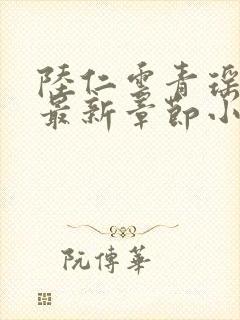 陸仁雲青瑶
最新章節小
阮傳華